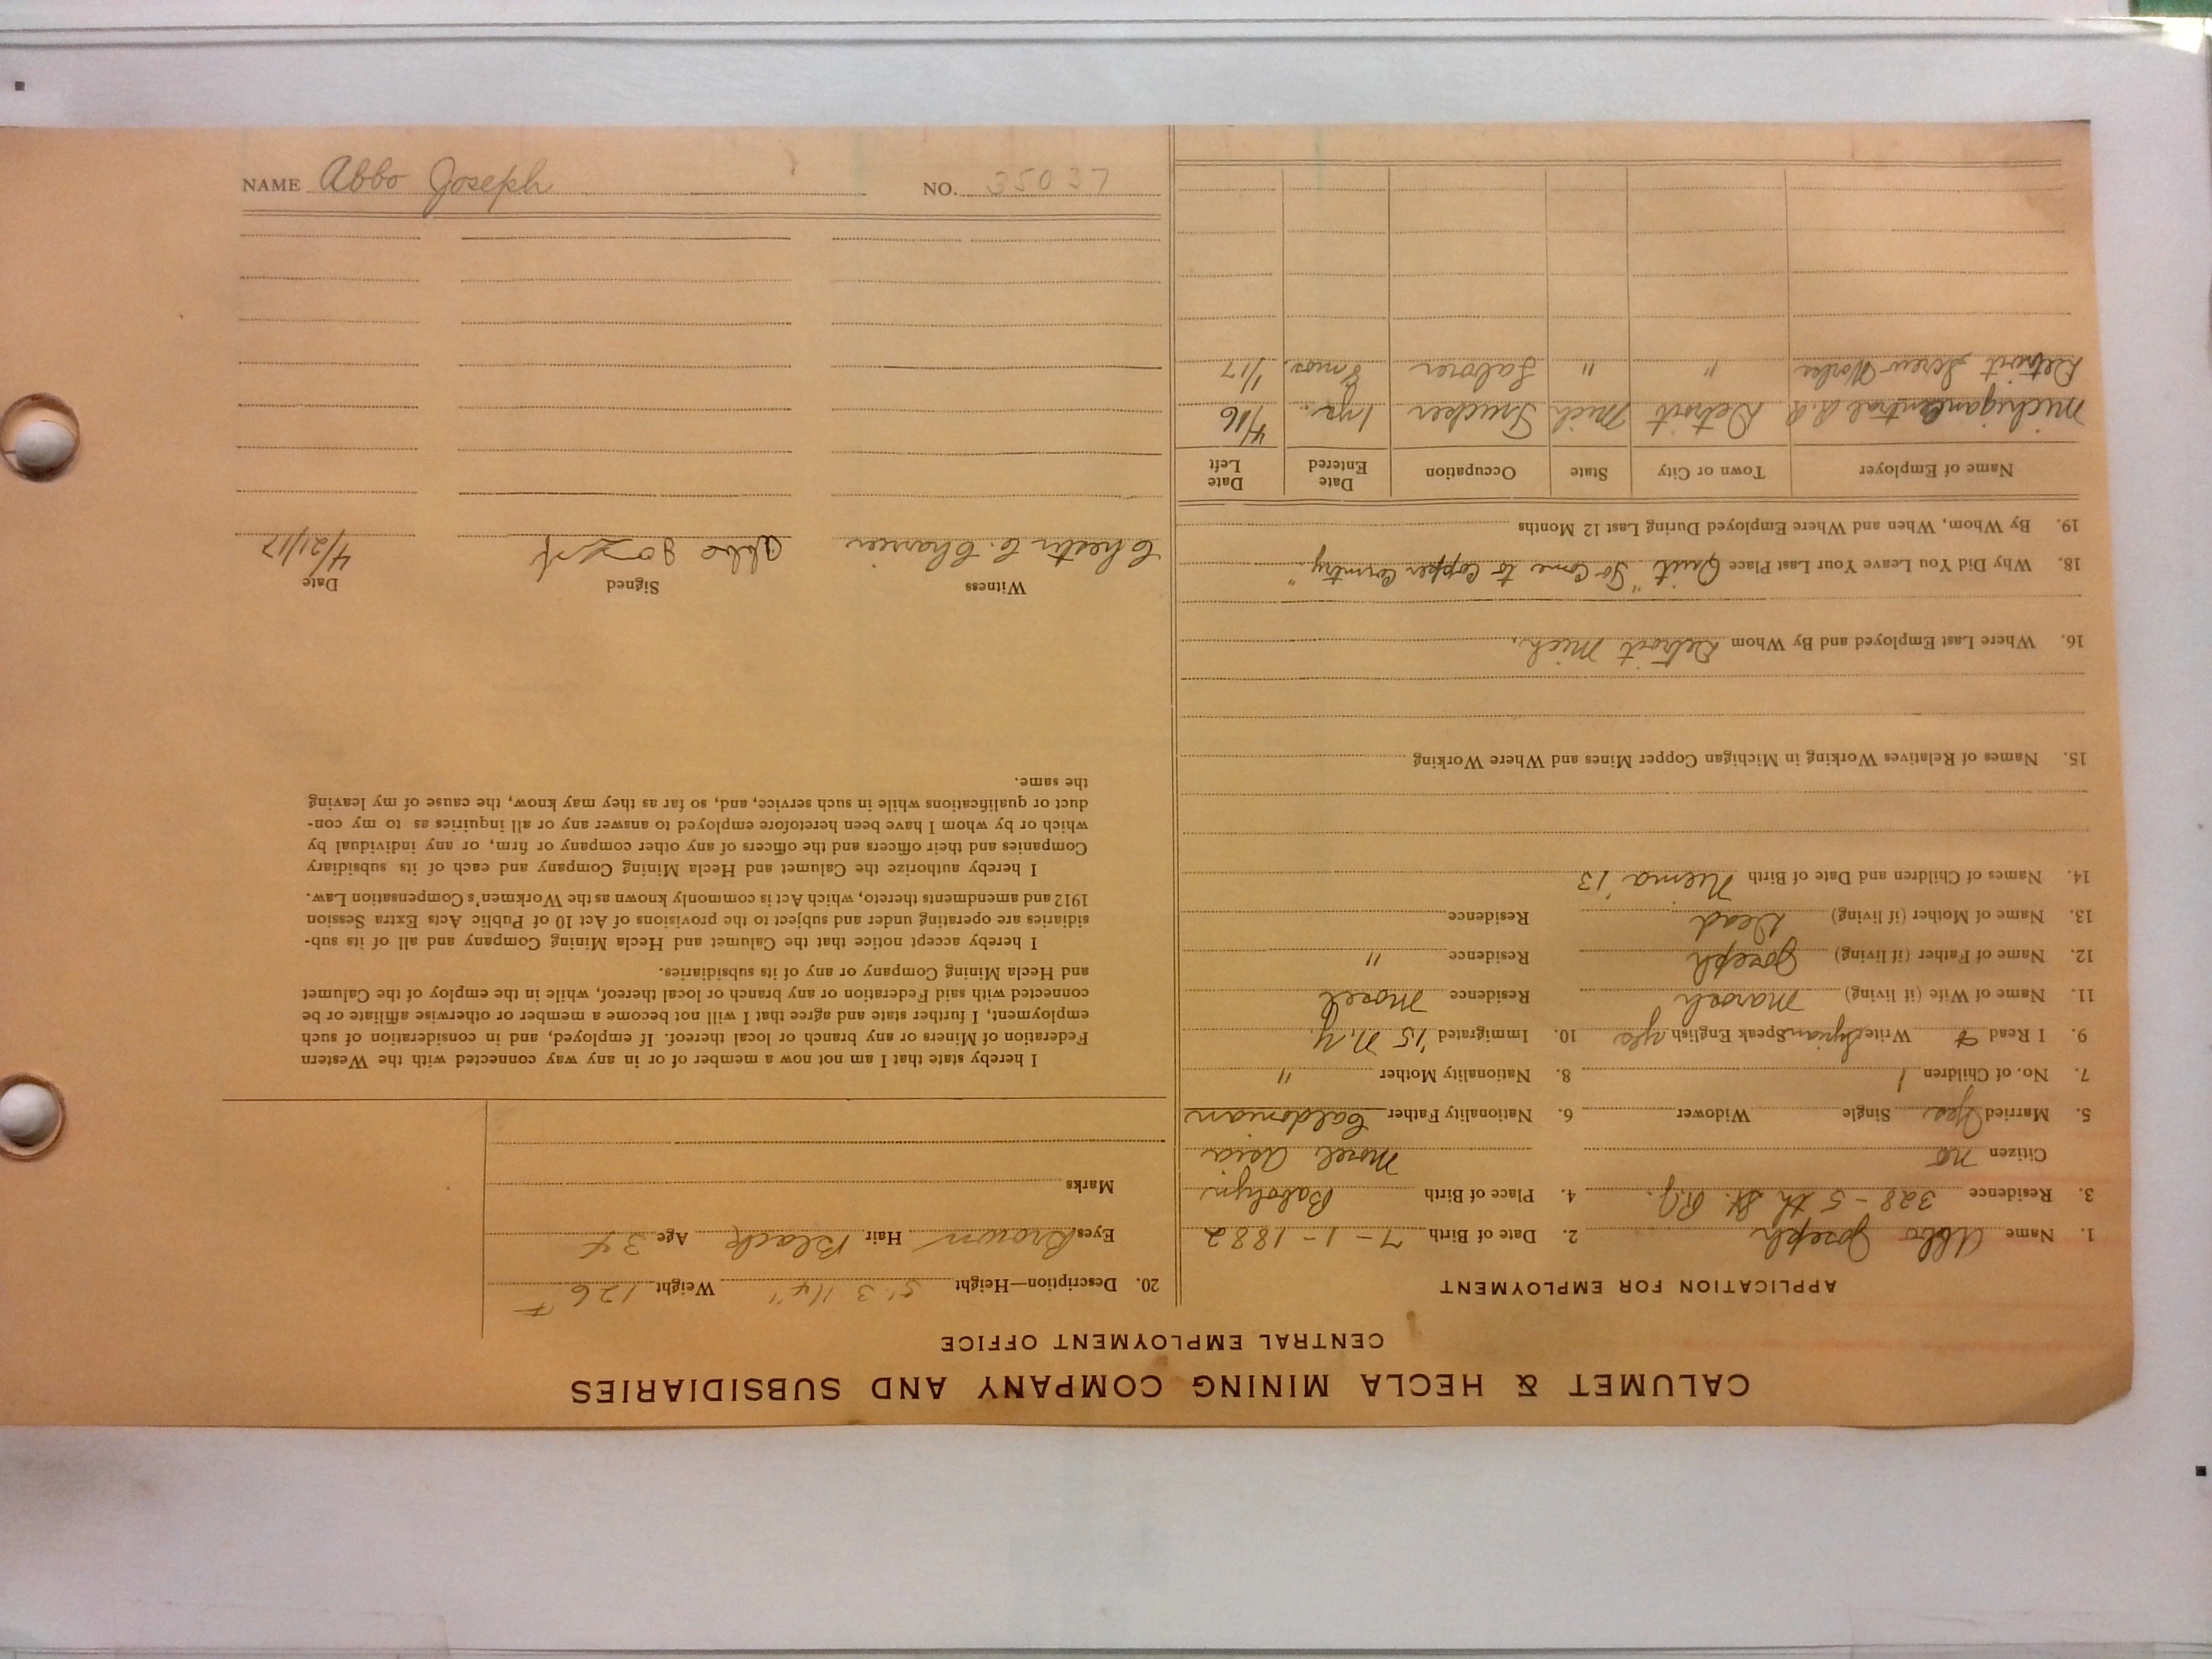 NAME Abbo Joseph NO. 35037
CALUMET & HECLA MINING COMPANY AND SUBSIDIARIES
CENTRAL EMPLOYMENT OFFICE
APPLICATION FOR EMPLOYMENT
1. Name Abbo Joseph 2. Date of Birth 7-1-1882
3. Residence 328-5th St. R.J. 4. Place of Birth Babolyn
Citizen no Mosel Asia
5. Married Yes Single Widower 6. Nationality Father Caldonian
7. No. of Children 1 8. Nationality Mother "
9. I Read & Write Syrian Speak English yes 10. Immigrated '15 N.Y.
11. Name of Wife (if living) Marosh Residence Mosel
12. Name of Father (if living) Joseph Residence "
13. Name of Mother (if living) Dead Residence
14. Names of Children and Date of Birth Niema '13
15. Names of Relatives Working in Michigan Copper Mines and Where Working
16. Where Last Employed and By Whom Detroit Mich.
18. Why Did You Leave Your Last Place Quit "To Come to Copper Country."
19. By Whom, When and Where Employed During Last 12 Months
Name of Employer Town or City State Occupation Date Entered Date Left
Michigan Central R.R. Detroit Mich Trucker 1 yr. 4/16
Detroit Screw Works " " Laborer 8 mos. 1/17
20. Description—Height 5' 3 1/4" Weight 126 #
Eyes Brown Hair Black Age 34
Marks
I hereby state that I am not now a member of or in any way connected with the Western
Federation of Miners or any branch or local thereof. If employed, and in consideration of such
employment, I further state and agree that I will not become a member or otherwise affiliate or be
connected with said Federation or any branch or local thereof, while in the employ of the Calumet
and Hecla Mining Company or any of its subsidiaries.
I hereby accept notice that the Calumet and Hecla Mining Company and all of its sub-
sidiaries are operating under and subject to the provisions of Act 10 of Public Acts Extra Session
1912 and amendments thereto, which Act is commonly known as the Workmen's Compensation Law.
I hereby authorize the Calumet and Hecla Mining Company and each of its subsidiary
Companies and their officers and the officers of any other company or firm, or any individual by
which or by whom I have been heretofore employed to answer any or all inquiries as to my con-
duct or qualifications while in such service, and, so far as they may know, the cause of my leaving
the same.
Witness Signed Date
Chester C. Abbo 4/21/17